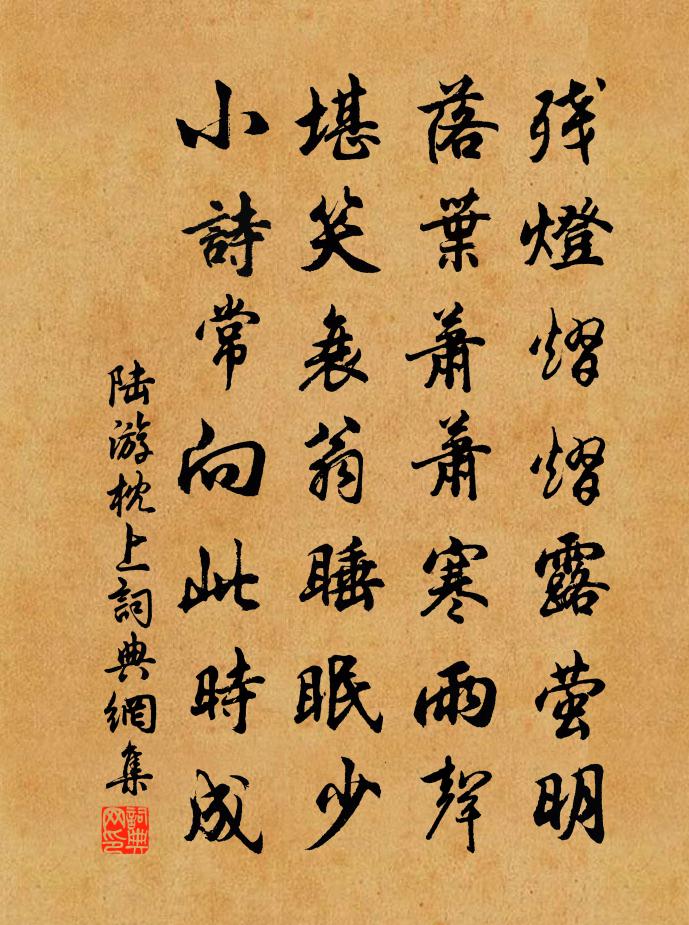 残燈熠熠露萤明
落葉萧萧寒雨聲
堪笑衰翁睡眠少
小詩常向此時成
陆游枕上詞典網集
詞典网印